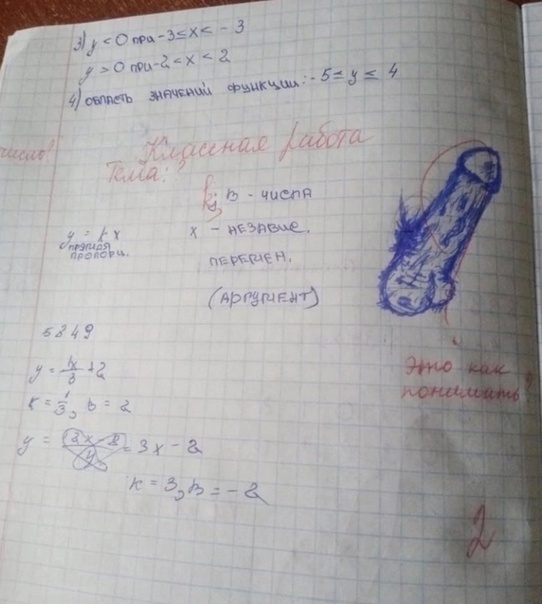 3) y < 0 при -3 ≤ x < -3
y > 0 при -2 < x < 2
4) область значений функции: -5 ≤ y ≤ 4
число!
Классная работа
Тема:
k; в - числа
y = k x
x - независ.
прямая
пропорц.
перемен.
(аргумент)
5849
y = x/3 + 2
k = 1/3, b = 2
y = 2x - 8/4 = 3x - 2
k = 3, b = -2
это как
понимать?
2